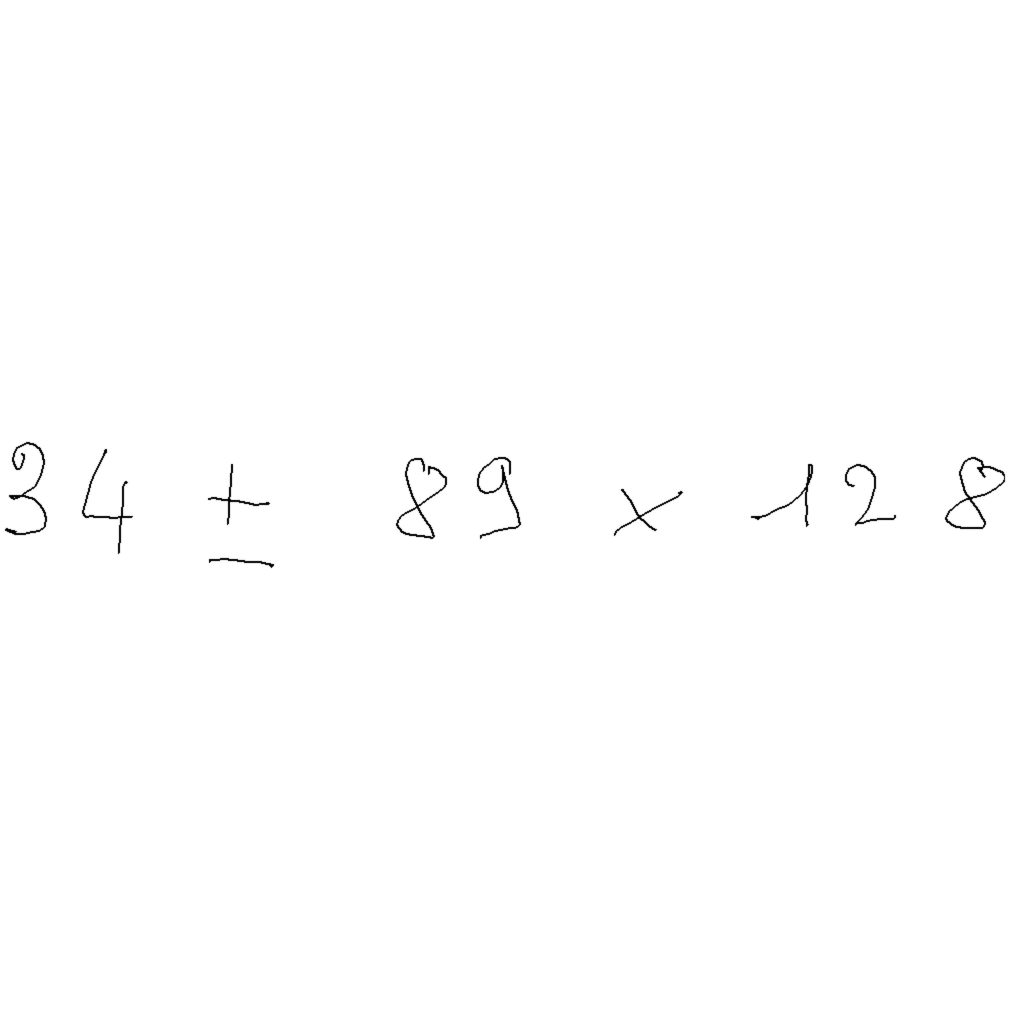 34 ± 89 × 128